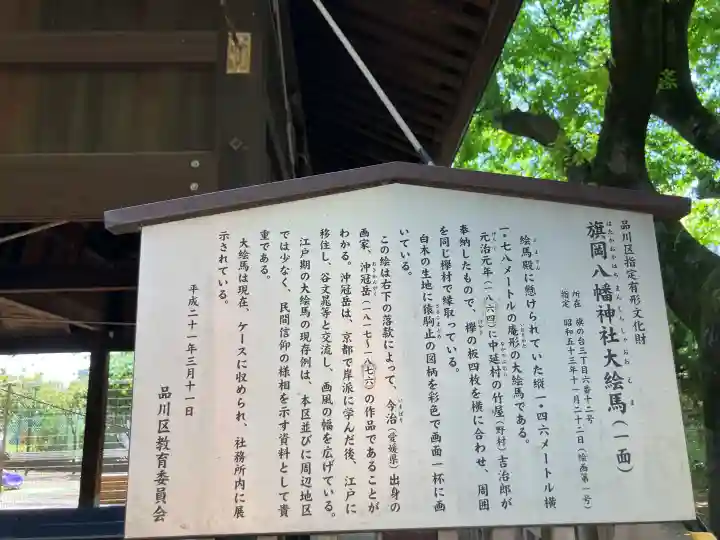 品川区指定有形文化財
旗岡八幡神社大絵馬(一面)
はたがおかはちまんじんじゃおおえま
所在 旗の台三丁目六番十二号
指定 昭和五十三年十一月二十二日(絵画第一号)
絵馬殿に懸けられていた縦一・四六メートル横
一・七八メートルの庵形の大絵馬である。
元治元年(一八六四)に中延村の竹屋(野村)吉治郎が
奉納したもので、欅の板四枚を横に合わせ、周囲
を同じ欅材で縁取っている。
白木の生地に猿駒止の図柄を彩色で画面一杯に画
いている。
この絵は右下の落款によって、今治(愛媛県)出身の
画家、沖冠岳(一八一七～一八七六)の作品であることが
わかる。沖冠岳は、京都で岸派に学んだ後、江戸に
移住し、谷文晁等と交流し、画風の幅を広げている。
江戸期の大絵馬の現存例は、本区並びに周辺地区
では少なく、民間信仰の様相を示す資料として貴
重である。
大絵馬は現在、ケースに収められ、社務所内に展
示されている。
平成二十一年三月十一日
品川区教育委員会